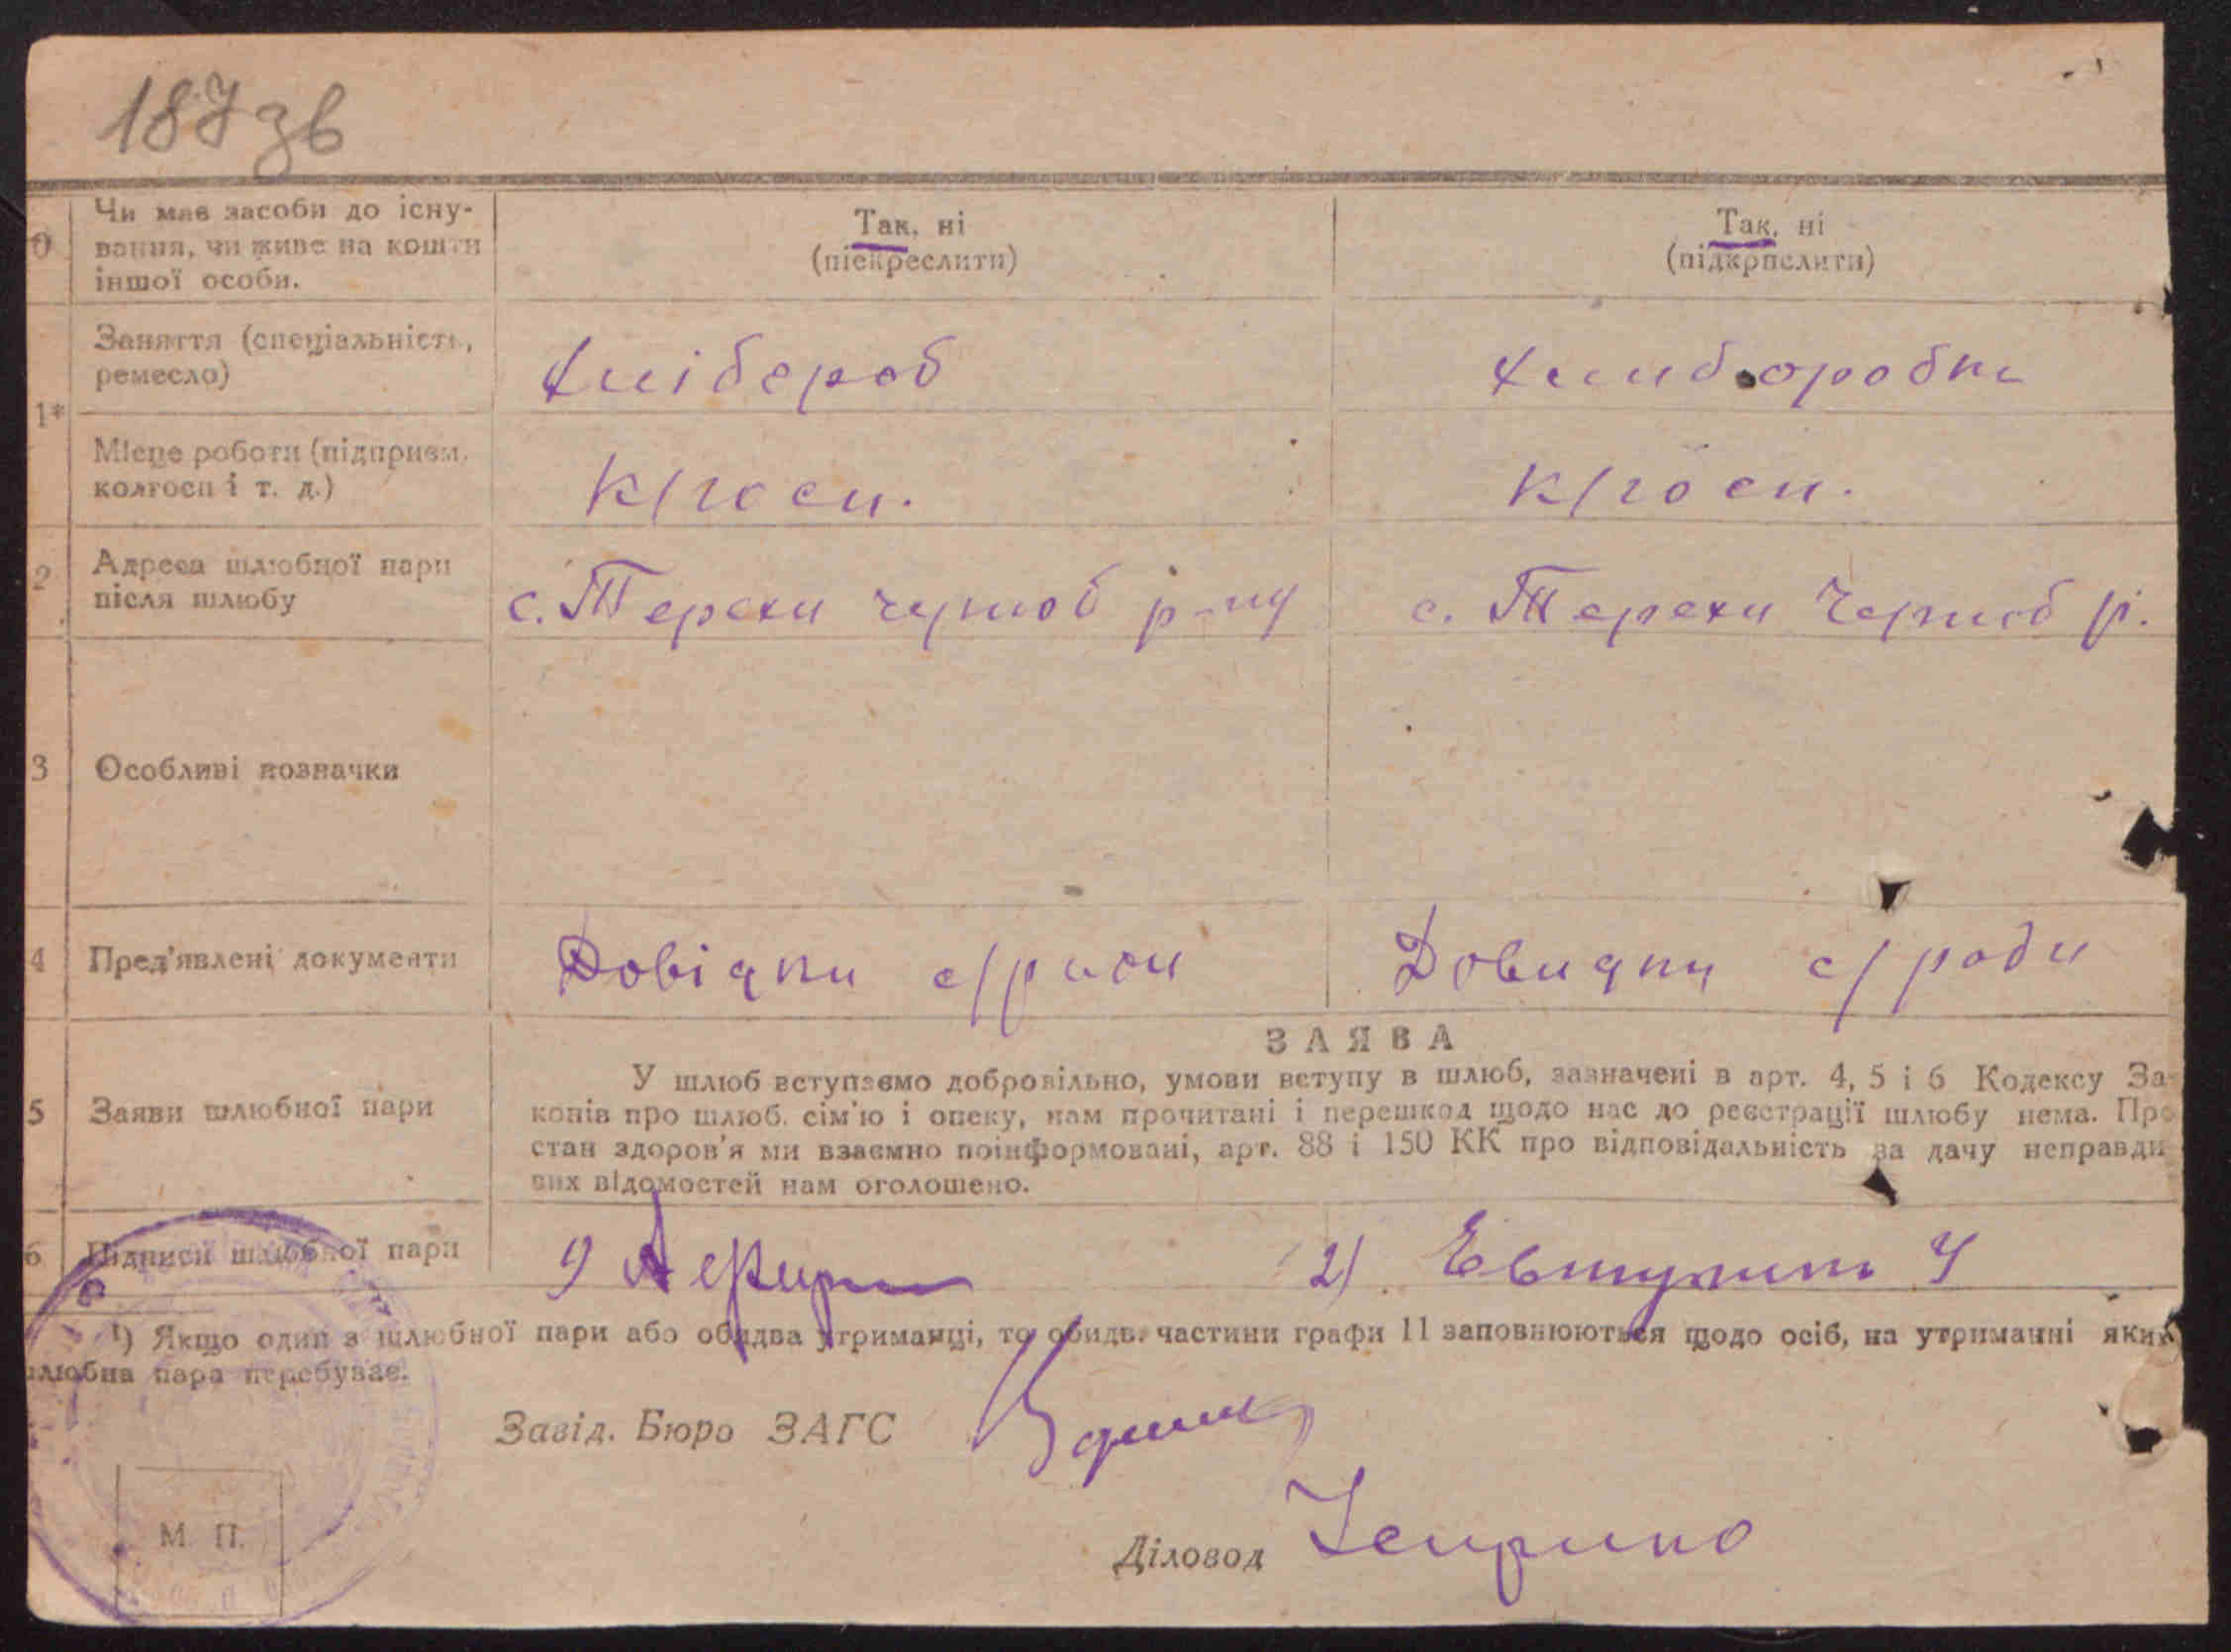 187 зв
0 Чи має засоби до існу-
вання, чи живе на кошти
іншої особи.
Так, ні
(піекреслити)
Так, ні
(підкрпслити)
1*
Заняття (спеціальність,
ремесло)
Хлібороб
Місце роботи (підприєм.
колгосп і т. д.)
К/госп.
К/госп.
2 Адреса шлюбної пари
після шлюбу
с. Терехи чорноб р-ну
с. Терехи Чорноб р.
3 Особливі позначки
4 Пред'явлені документи
Довідки с/ради
Довидки с/ради
5 Заяви шлюбної пари
ЗАЯВА
У шлюб вступаємо добровільно, умови вступу в шлюб, зазначені в арт. 4, 5 і 6 Кодексу За-
конів про шлюб. сім'ю і опеку, нам прочитані і перешкод щодо нас до реєстрації шлюбу нема. Про
стан здоров'я ми взаємно поінформовані, арт. 88 і 150 КК про відповідальність за дачу неправди-
вих відомостей нам оголошено.
6 Підписи шлюбної пари
1)
2)
¹) Якщо один з шлюбної пари або обидва утриманці, то обидві частини графи 11 заповнюються щодо осіб, на утриманні яких
шлюбна пара перебуває.
Завід. Бюро ЗАГС
М. П.
Діловод